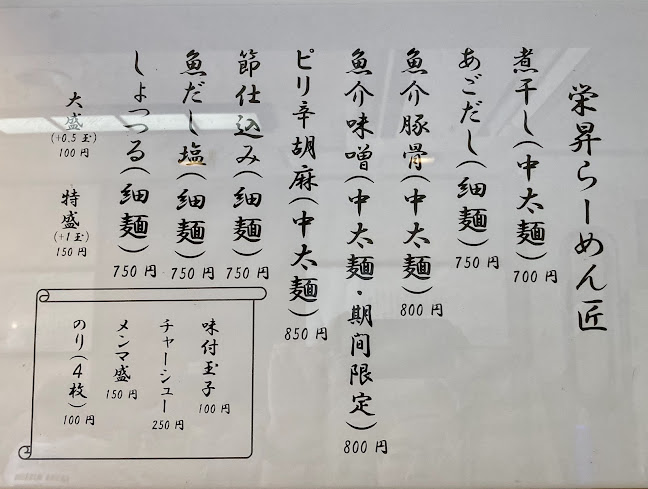 栄昇らーめん匠
煮干し(中太麺)700円
あごだし(細麺)750円
魚介豚骨(中太麺)800円
魚介味噌(中太麺・期間限定)800円
ピリ辛胡麻(中太麺)850円
節仕込み(細麺)750円
魚だし塩(細麺)750円
しょっつる(細麺)750円
大盛(+0.5玉)100円
特盛(+1玉)150円
味付玉子100円
チャーシュー250円
メンマ盛150円
のり(4枚)100円